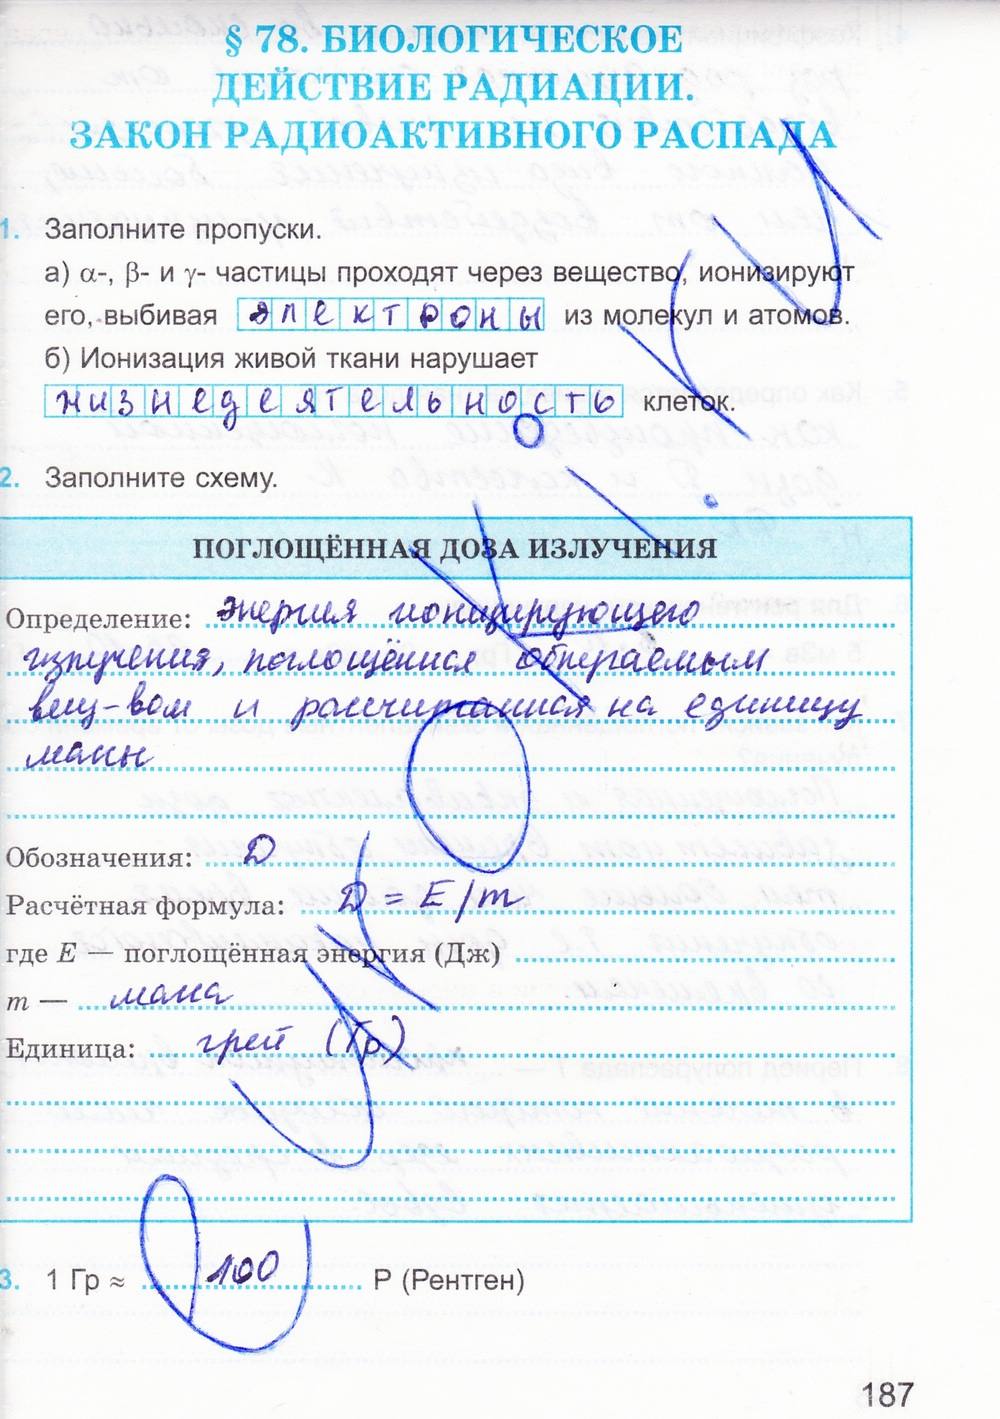 § 78. БИОЛОГИЧЕСКОЕ
ДЕЙСТВИЕ РАДИАЦИИ.
ЗАКОН РАДИОАКТИВНОГО РАСПАДА
1. Заполните пропуски.
а) α-, β- и γ- частицы проходят через вещество, ионизируют
его, выбивая электроны из молекул и атомов.
б) Ионизация живой ткани нарушает
жизнедеятельность клеток.
2. Заполните схему.
ПОГЛОЩЁННАЯ ДОЗА ИЗЛУЧЕНИЯ
Определение: энергия ионизирующего
излучения, поглощённая облучаемым
вещ-вом и рассчитанная на единицу
массы
Обозначения: D
Расчётная формула: D = E/m
где E — поглощённая энергия (Дж)
m — масса
Единица: грей (Гр)
3. 1 Гр ≈ 100 Р (Рентген)
187